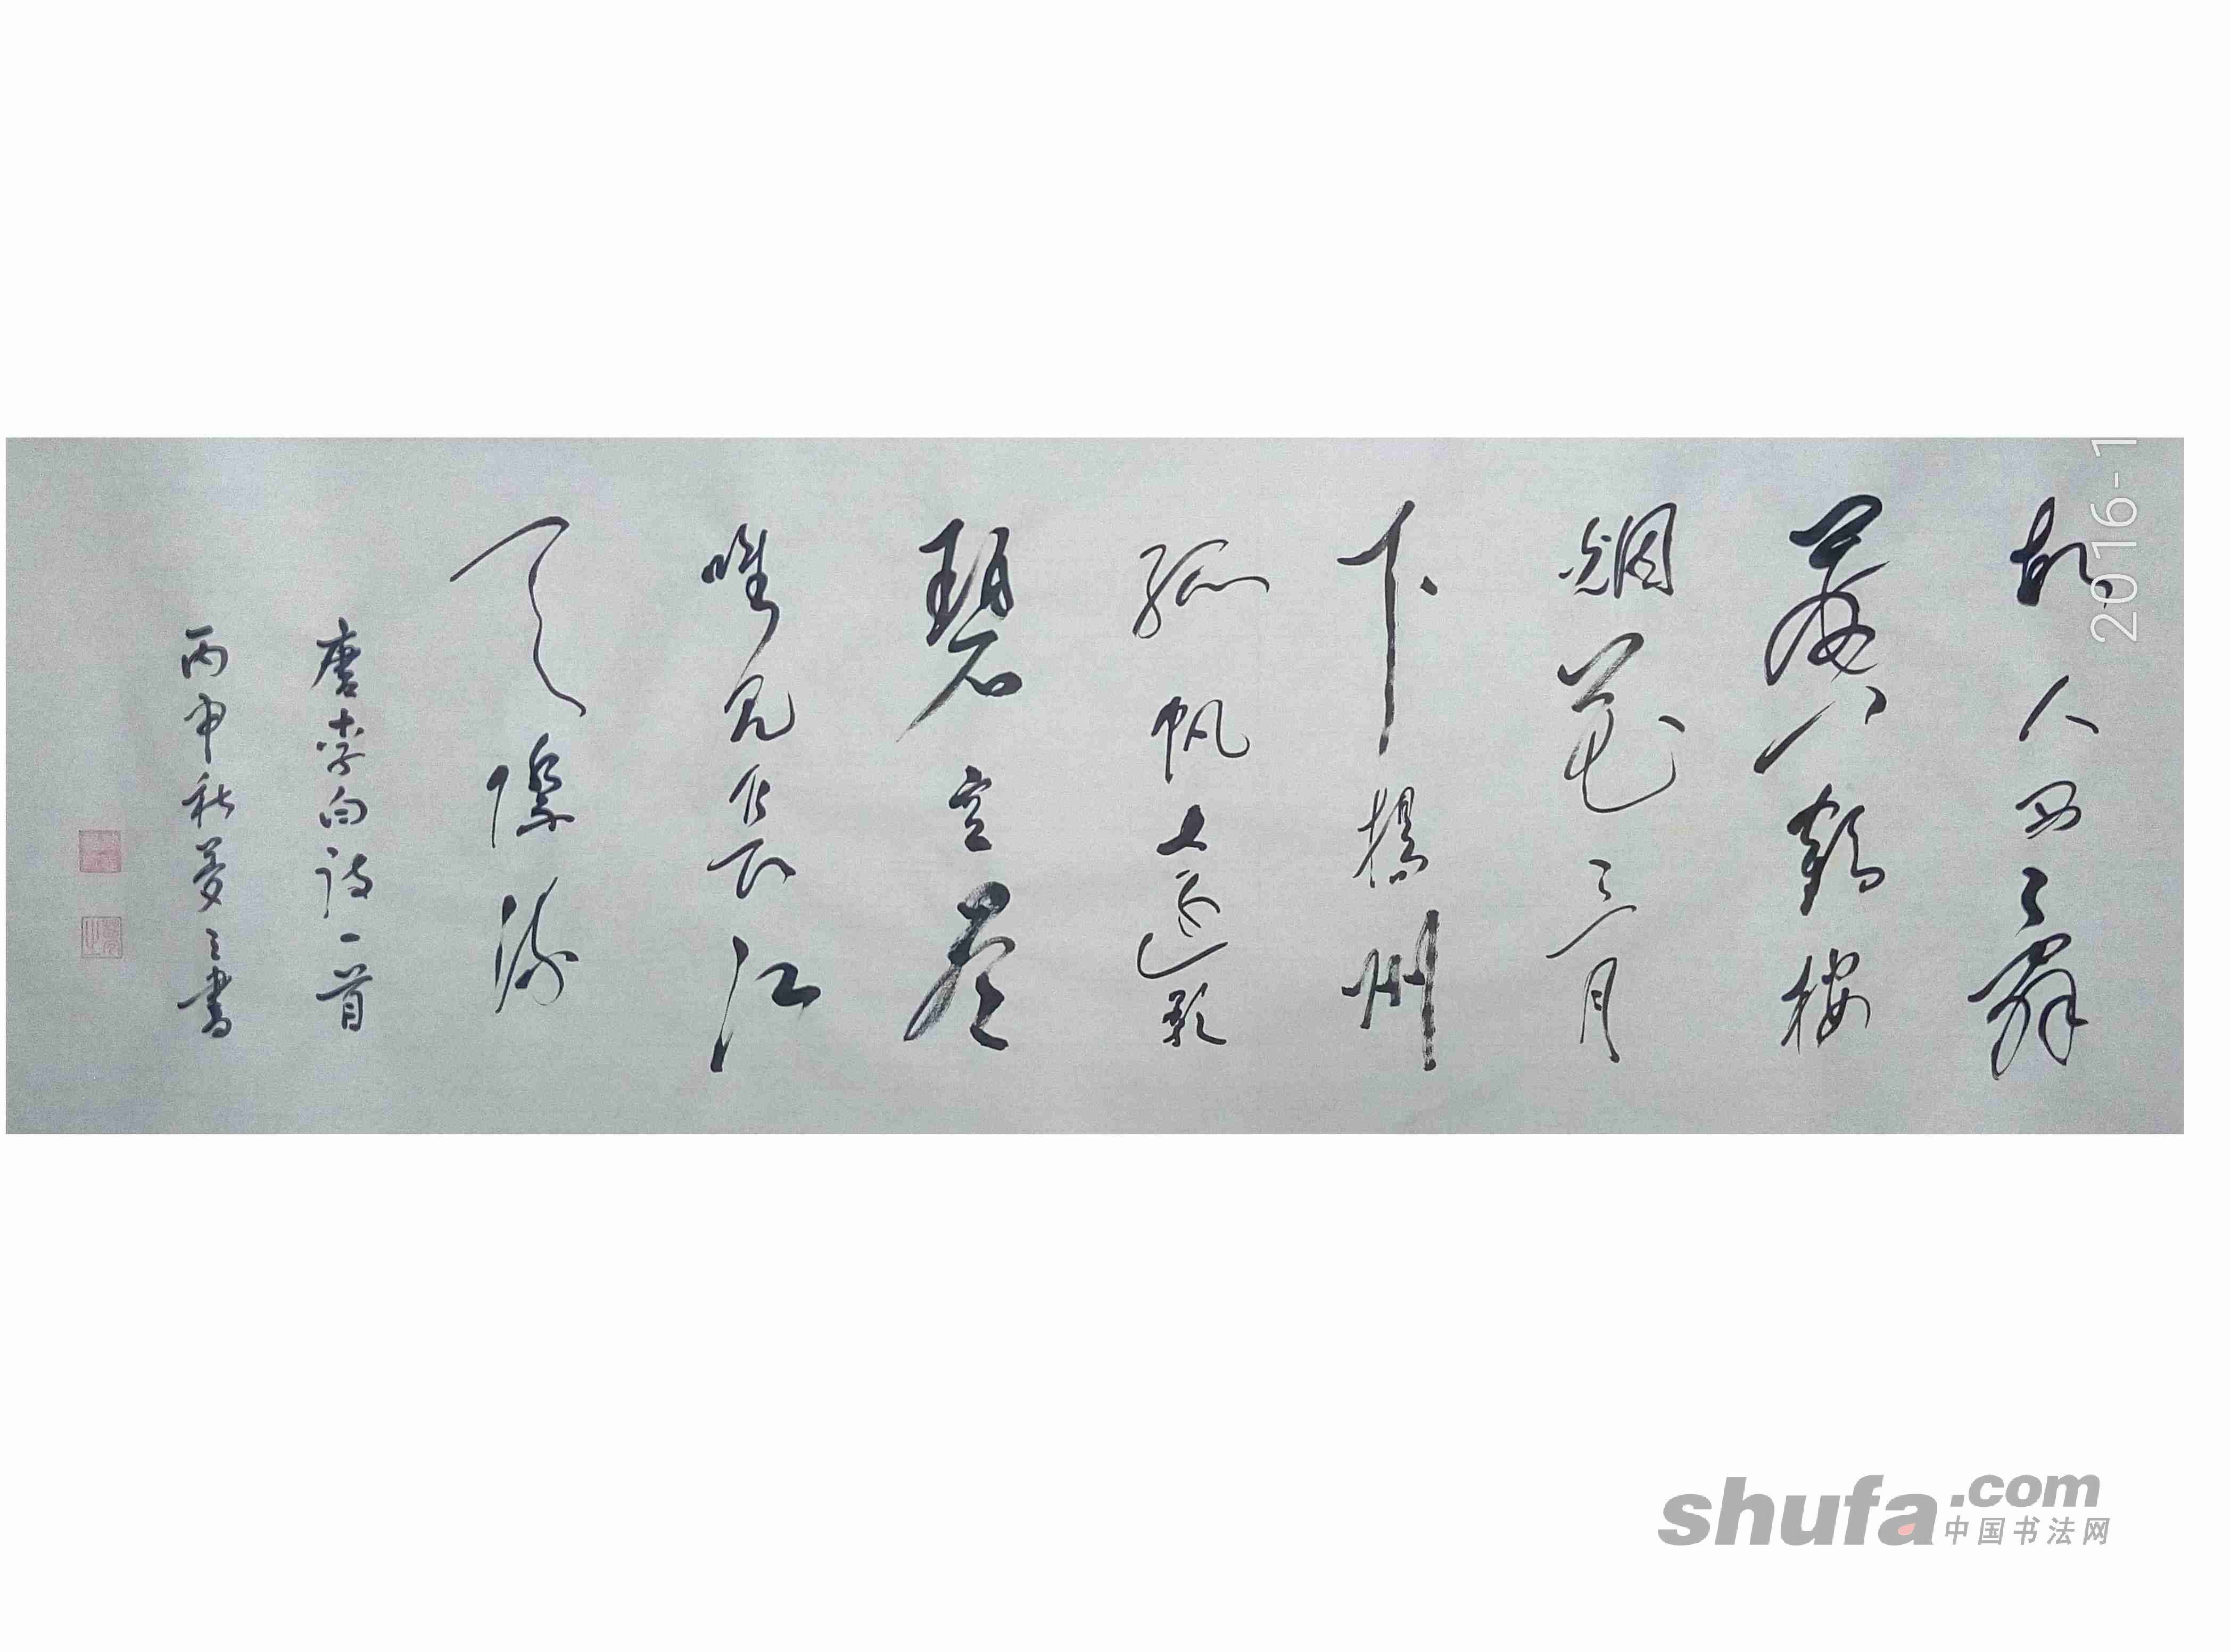 故人西之辞
黄鹤楼
烟花三月
下揚州
孤帆远影
碧空尽
唯見長江
天際流
唐李白詩一首
丙申秋夢之書
2016-1
shufa.com
中国书法网